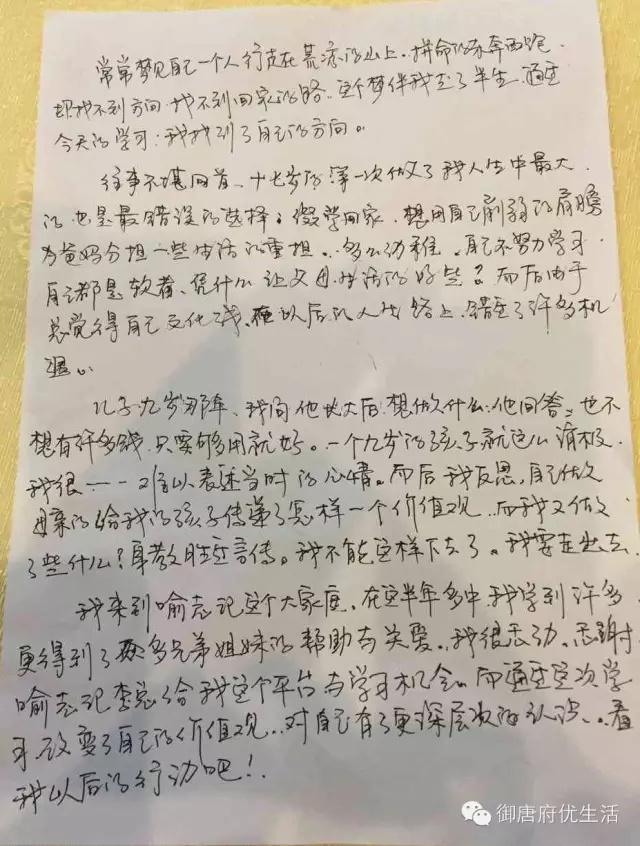 常常梦见自己一个人行走在荒凉的山上。拼命的东奔西跑.
却找不到方向.找不到回家的路.这个梦伴我走了半生.通过
今天的学习:我找到了自己的方向。
往事不堪回首、十七岁的第一次做了我人生中最大
的也是最错误的选择:缀学回家.想用自己削弱的肩膀
为爸妈分担一些生活的重担。多么幼稚。自己不努力学习.
自己都是软者、凭什么让父母生活的好些?而后由于
总觉得自己文化浅、在以后的人生路上.错过了许多机
遇。
儿子九岁那年、我问他长大后想做什么:他回答:也不
想有许多钱.只要够用就好。一个九岁的孩子就这么消极.
我很——难以表述当时的心情。而后我反思,自己做
母亲的给我的孩子传递了怎样一个价值观.而我又做
了些什么?身教胜过言传。我不能这样下去了。我要走出去.
我来到喻志记这个大家庭.在这半年多中.我学到许多
更得到了众多兄弟姐妹的帮助与关爱.我很感动.感谢
喻志记李总给我这个平台与学习机会。而通过这次学
习.改变了自己的价值观..对自己有了更深层次的认识..看
我以后的行动吧!.
御唐府优生活